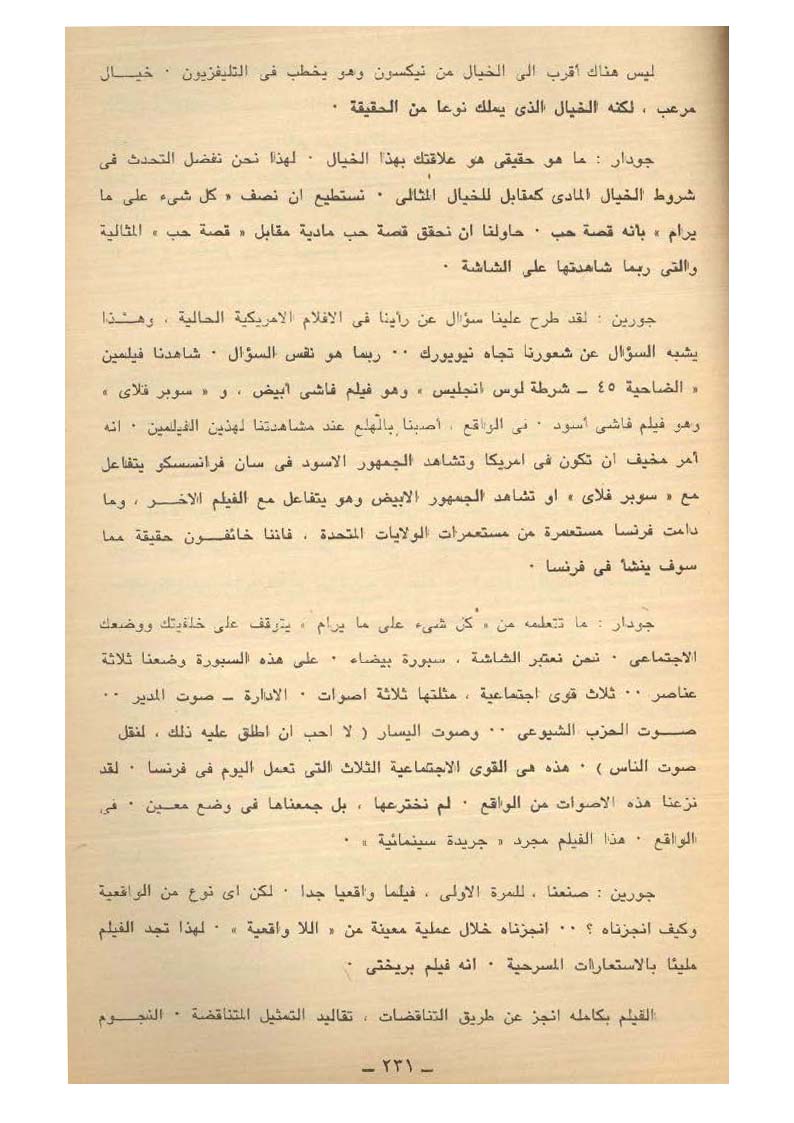 ليس هناك أقرب الى الخيال من نيكسون وهو يخطب فى التليفزيون · خيـــال
مرعب ، لكنه الخيال الذى يملك نوعا من الحقيقة ·
جودار : ما هو حقيقى هو علاقتك بهذا الخيال · لهذا نحن نفضل التحدث فى
شروط الخيال المادى كمقابل للخيال المثالى · نستطيع ان نصف « كل شىء على ما
يرام » بأنه قصة حب · حاولنا ان نحقق قصة حب مادية مقابل « قصة حب » المثالية
والتى ربما شاهدتها على الشاشة ·
جورين : لقد طرح علينا سؤال عن رأينا فى الافلام الامريكية الحالية ، وهــذا
يشبه السؤال عن شعورنا تجاه نيويورك ·· ربما هو نفس السؤال · شاهدنا فيلمين
« الضاحية ٤٥ ـ شرطة لوس انجليس » وهو فيلم فاشى أبيض ، و « سوبر فلاى »
وهو فيلم فاشى أسود · فى الواقع ، أصبنا بالهلع عند مشاهدتنا لهذين الفيلمين · انه
أمر مخيف ان تكون فى امريكا وتشاهد الجمهور الاسود فى سان فرانسسكو يتفاعل
مع « سوبر فلاى » او تشاهد الجمهور الابيض وهو يتفاعل مع الفيلم الاخــر ، وما
دامت فرنسا مستعمرة من مستعمرات الولايات المتحدة ، فاننا خائفــون حقيقة مما
سوف ينشأ فى فرنسا ·
جودار : ما تتعلمه من « كل شىء على ما يرام » يتوقف على خلفيتك ووضعك
الاجتماعى · نحن نعتبر الشاشة ، سبورة بيضاء · على هذه السبورة وضعنا ثلاثة
عناصر ·· ثلاث قوى اجتماعية ، مثلتها ثلاثة اصوات · الادارة ـ صوت المدير ··
صـــوت الحزب الشيوعى ·· وصوت اليسار ( لا احب ان اطلق عليه ذلك ، لنقل
صوت الناس ) · هذه هى القوى الاجتماعية الثلاث التى تعمل اليوم فى فرنسا · لقد
نزعنا هذه الاصوات من الواقع · لم نخترعها ، بل جمعناها فى وضع معــين · فى
الواقع · هذا الفيلم مجرد « جريدة سينمائية » ·
جورين : صنعنا ، للمرة الاولى ، فيلما واقعيا جدا · لكن اى نوع من الواقعية
وكيف انجزناه ؟ ·· انجزناه خلال عملية معينة من « اللا واقعية » · لهذا تجد الفيلم
مليئا بالاستعارات المسرحية · انه فيلم بريختى ·
الفيلم بكامله انجز عن طريق التناقضات ، تقاليد التمثيل المتناقضة · النجـــوم
ـ ٢٣١ ـ